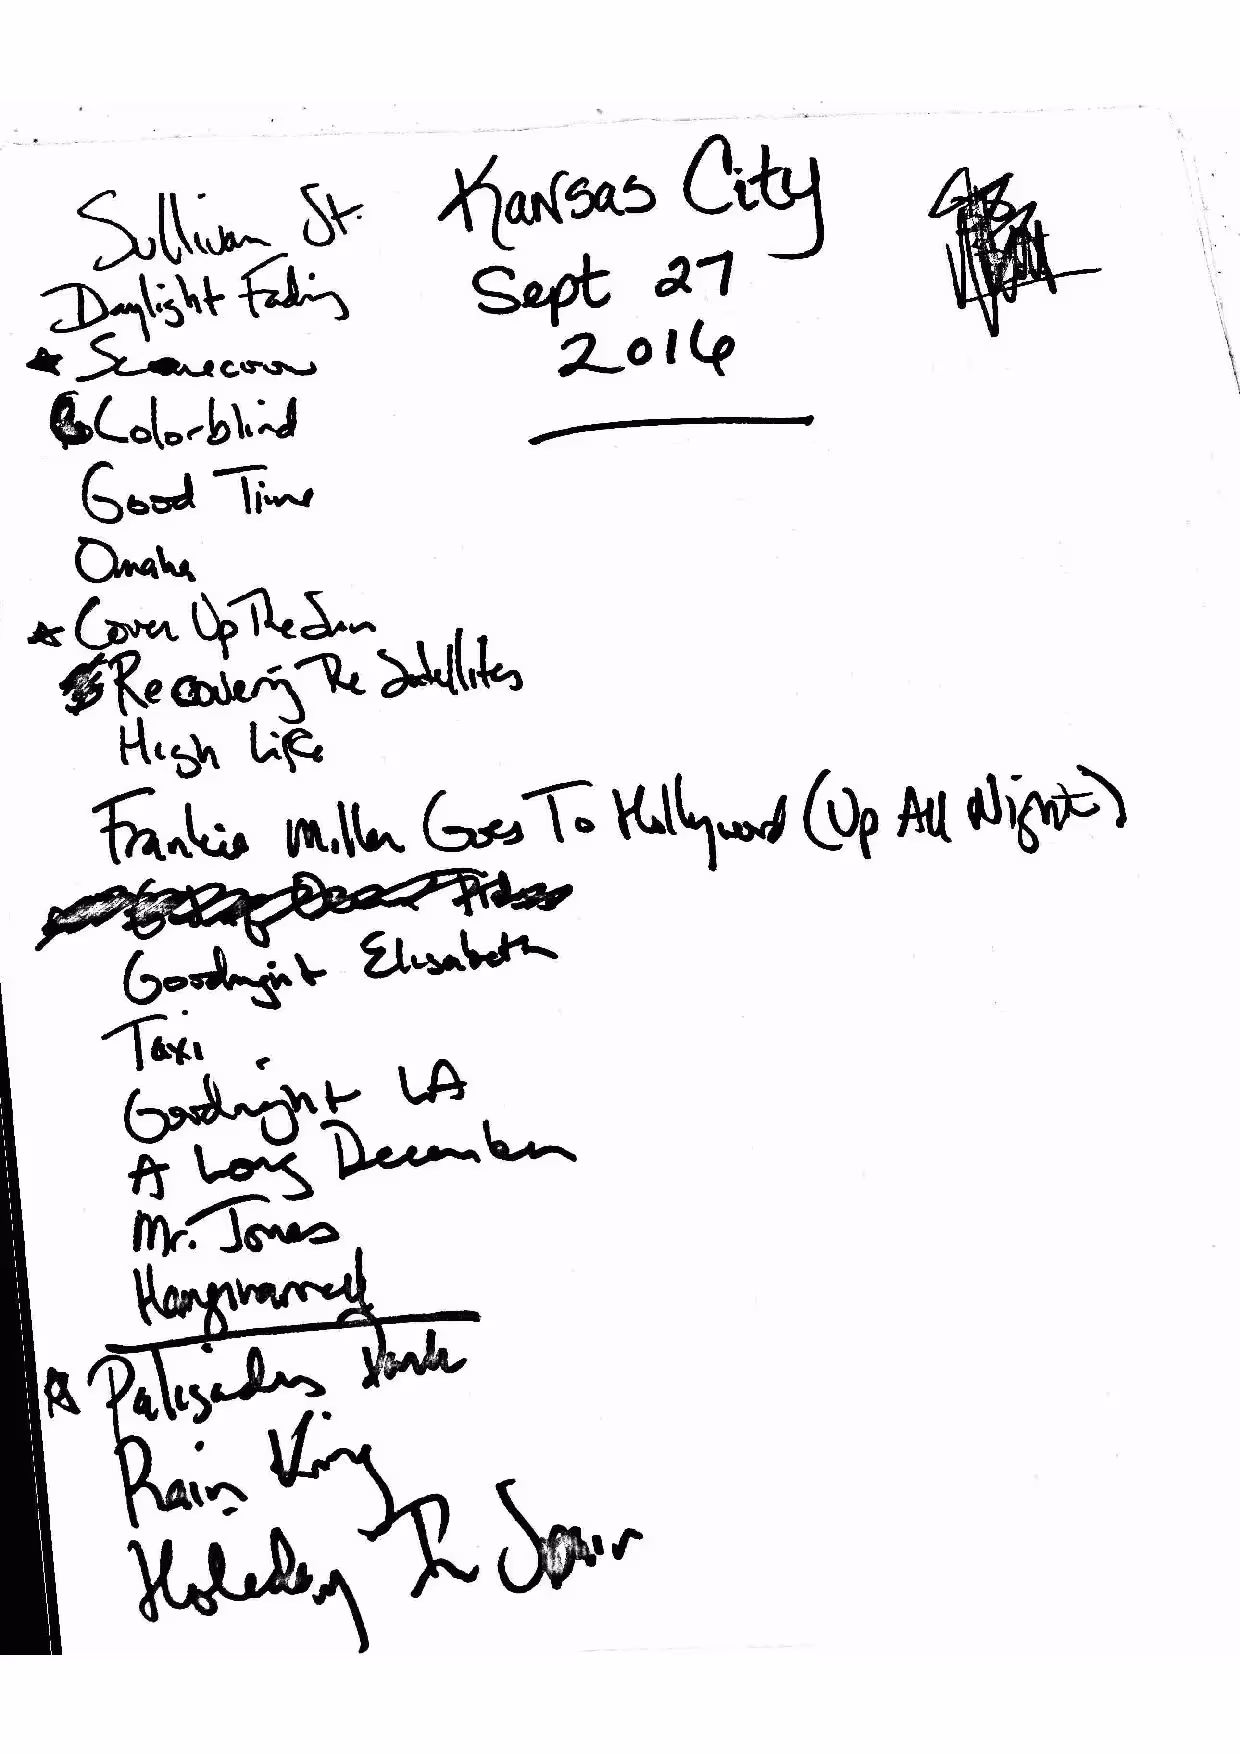 Kansas City
Sept 27
2016
Sullivan St.
Daylight Fading
Scarecrow
Colorblind
Good Time
Omaha
Cover Up The Sun
Recovering The Satellites
High Life
Frankie Miller Goes To Hollywood (Up All Night)
Goodnight Elisabeth
Taxi
Goodnight LA
A Long December
Mr. Jones
Hanginaround
Palisades Park
Rain King
Holiday In Spain